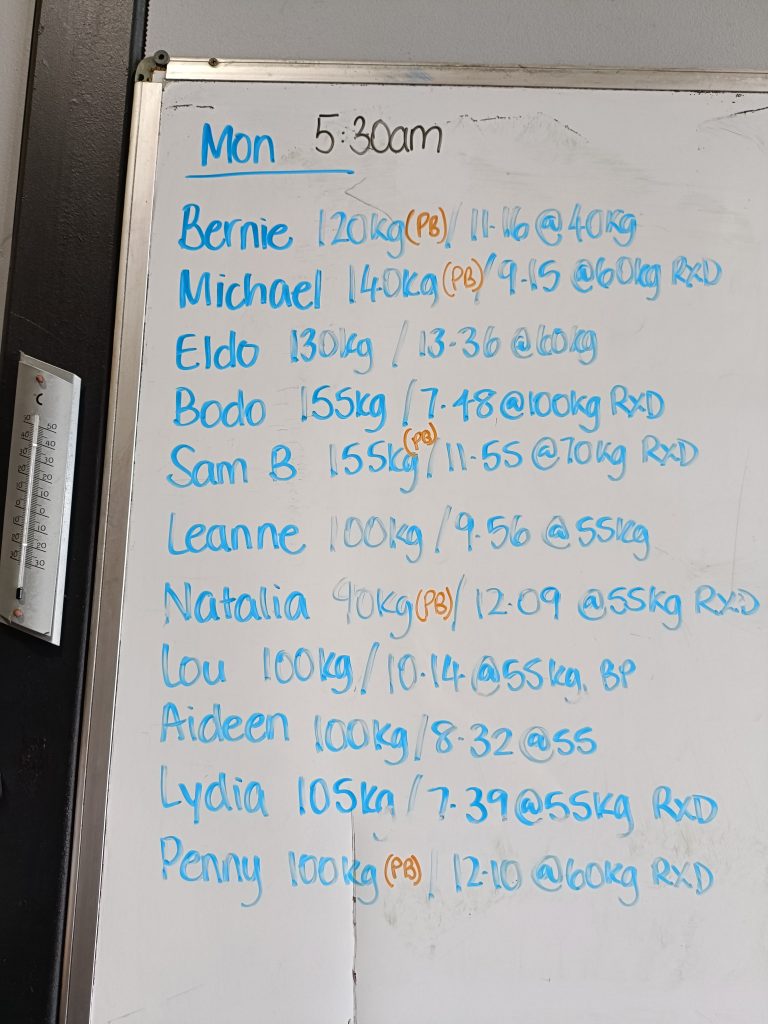 Mon 5:30am
Bernie 120kg (PB) / 11.16 @ 40kg
Michael 140kg (PB) / 9.15 @60kg RXD
Eldo 130kg / 13.36 @60kg
Bodo 155kg / 7.48 @100kg RXD
Sam B 155kg (PB) / 11.55 @70kg RXD
Leanne 100kg / 9.56 @55kg
Natalia 90kg (PB) / 12.09 @55kg RXD
Lou 100kg / 10.14 @55kg. BP
Aideen 100kg / 8.32 @55
Lydia 105kg / 7.39 @55kg RXD
Penny 100kg (PB) / 12.10 @60kg RXD
°C